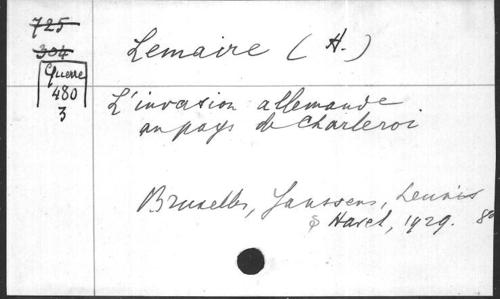 725
304
Guerre
480
3
Lemaire (H.)
L'invasion allemande
au pays de Charleroi
Bruxelles, Janssens, Leunis
& Havet, 1929. 8°